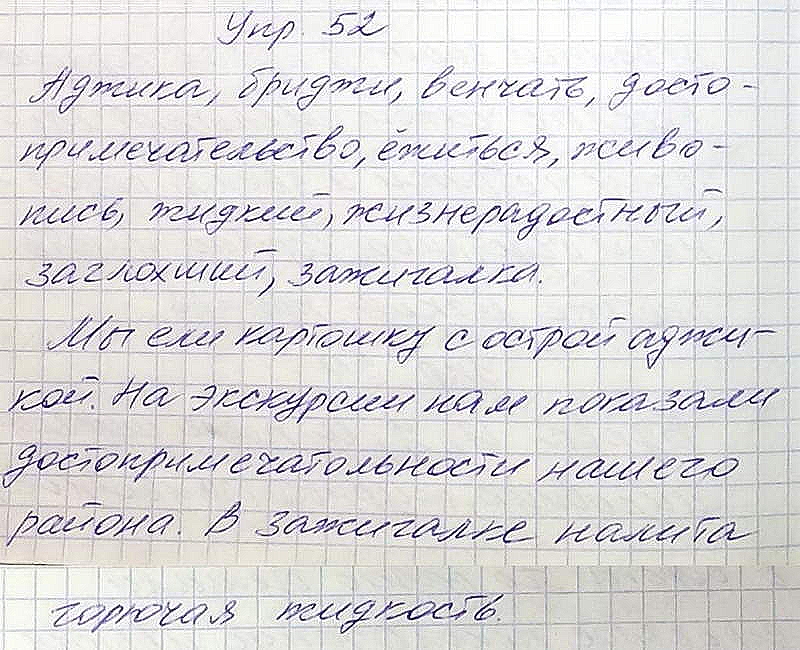 Упр. 52
Аджика, бриджи, венчать, досто-
примечательство, ёжиться, живо-
пись, жидкий, жизнерадостный,
заглохший, зажигалка.
Мы ели картошку с острой аджи-
кой. На экскурсии нам показали
достопримечательности нашего
района. В зажигалке налита
горючая жидкость.